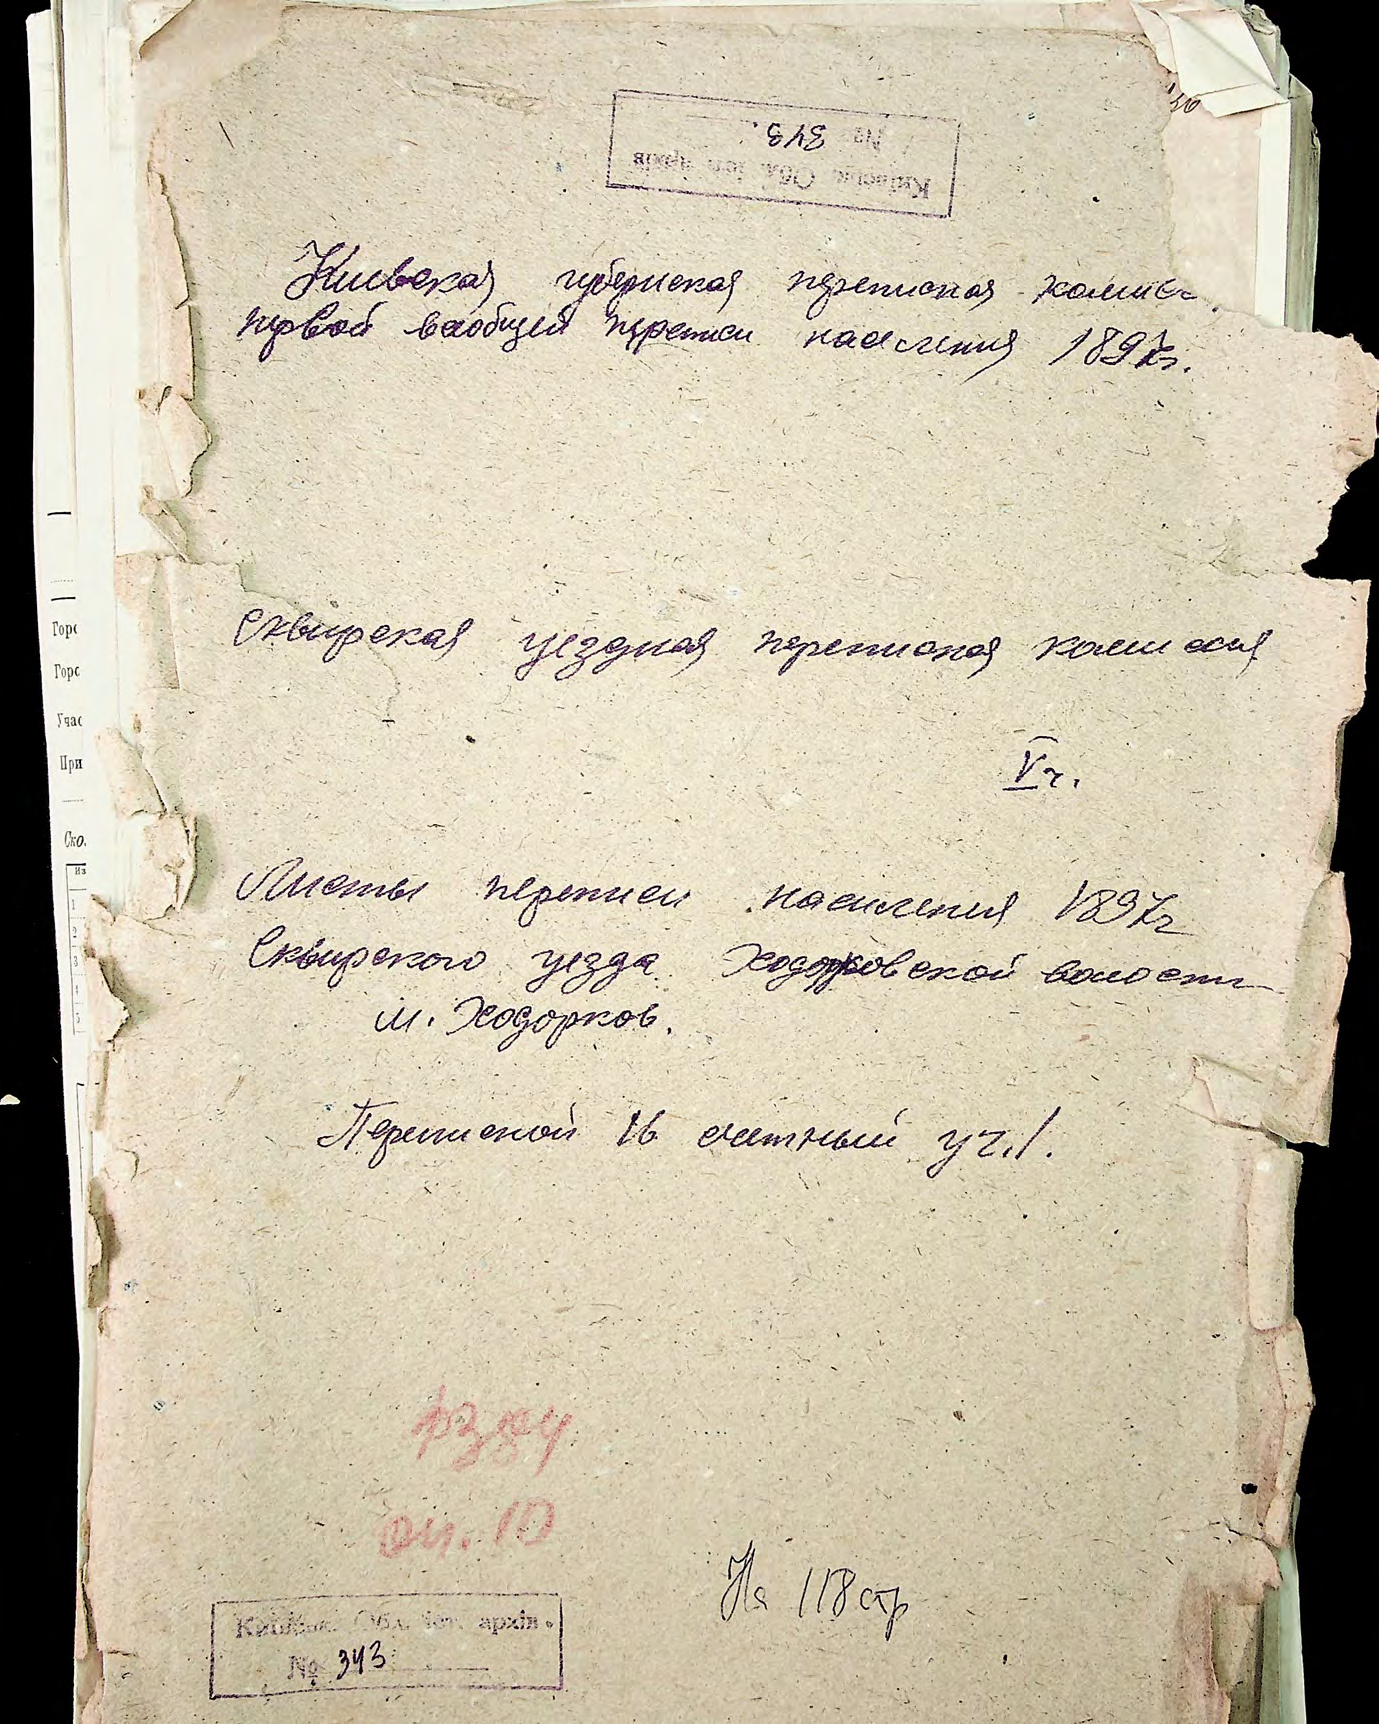 Київськ. Обл. іст. архів
№ 343.
Киевская губернская переписная комис
первой всеобщей переписи населения 1897г.
Сквирская уездная переписная комиссия
V ч.
Листы переписи населения 1897г
Сквирского уезда Ходорковской волости
м. Ходорков.
Переписной 16 счетный уч. 1.
оп. 10
На 118 стр
Київськ. Обл. іст. архів.
№ 343
Горо
Горо
Учас
При
Ско.
Из
1
2
3
4
5